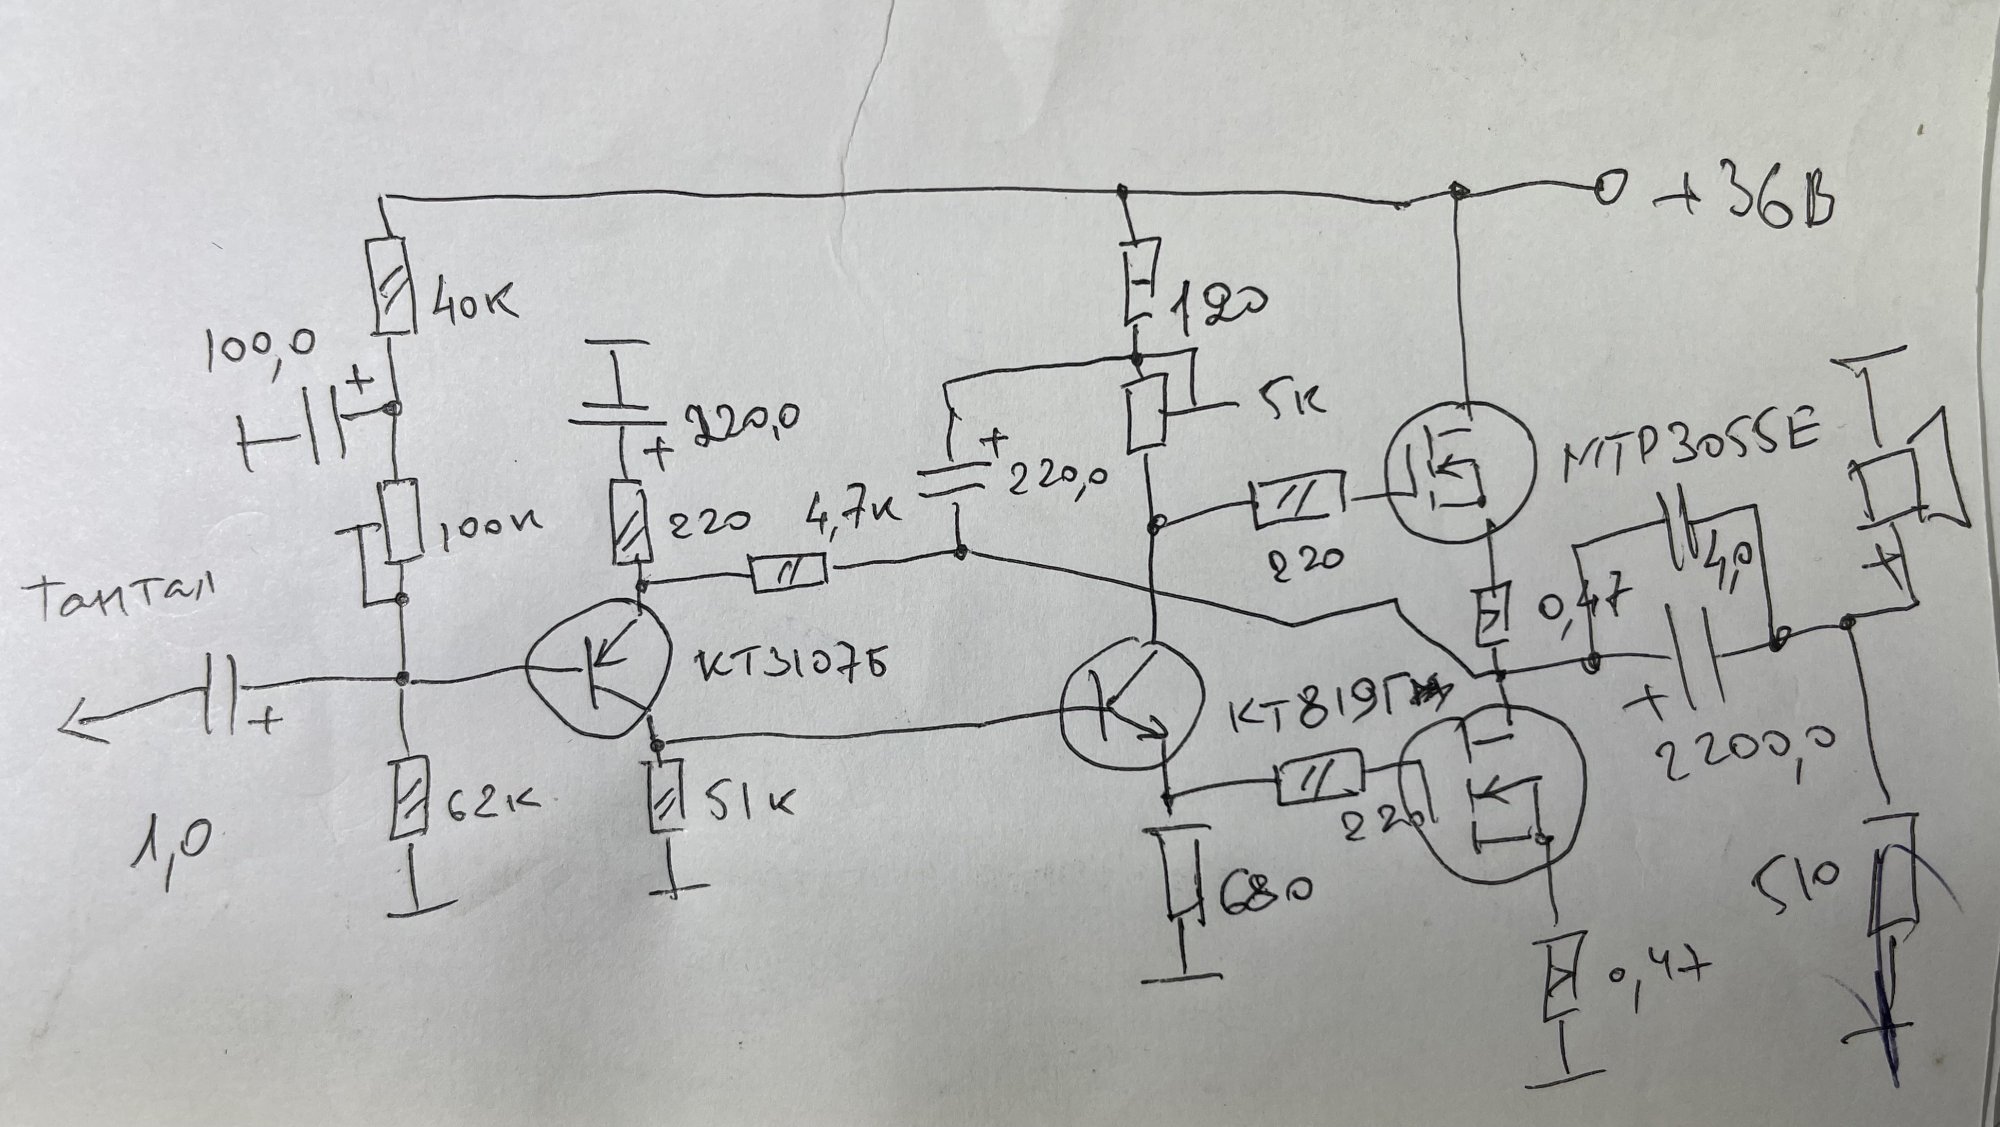 +36В
40к
120
100,0
+
5к
220,0
+
+
220,0
MTP3055E
100к
220
4,7к
220
4,0
Тантал
0,47
+
КТ3107Б
+
КТ819Г
+
2200,0
1,0
62к
51к
220
680
510
0,47